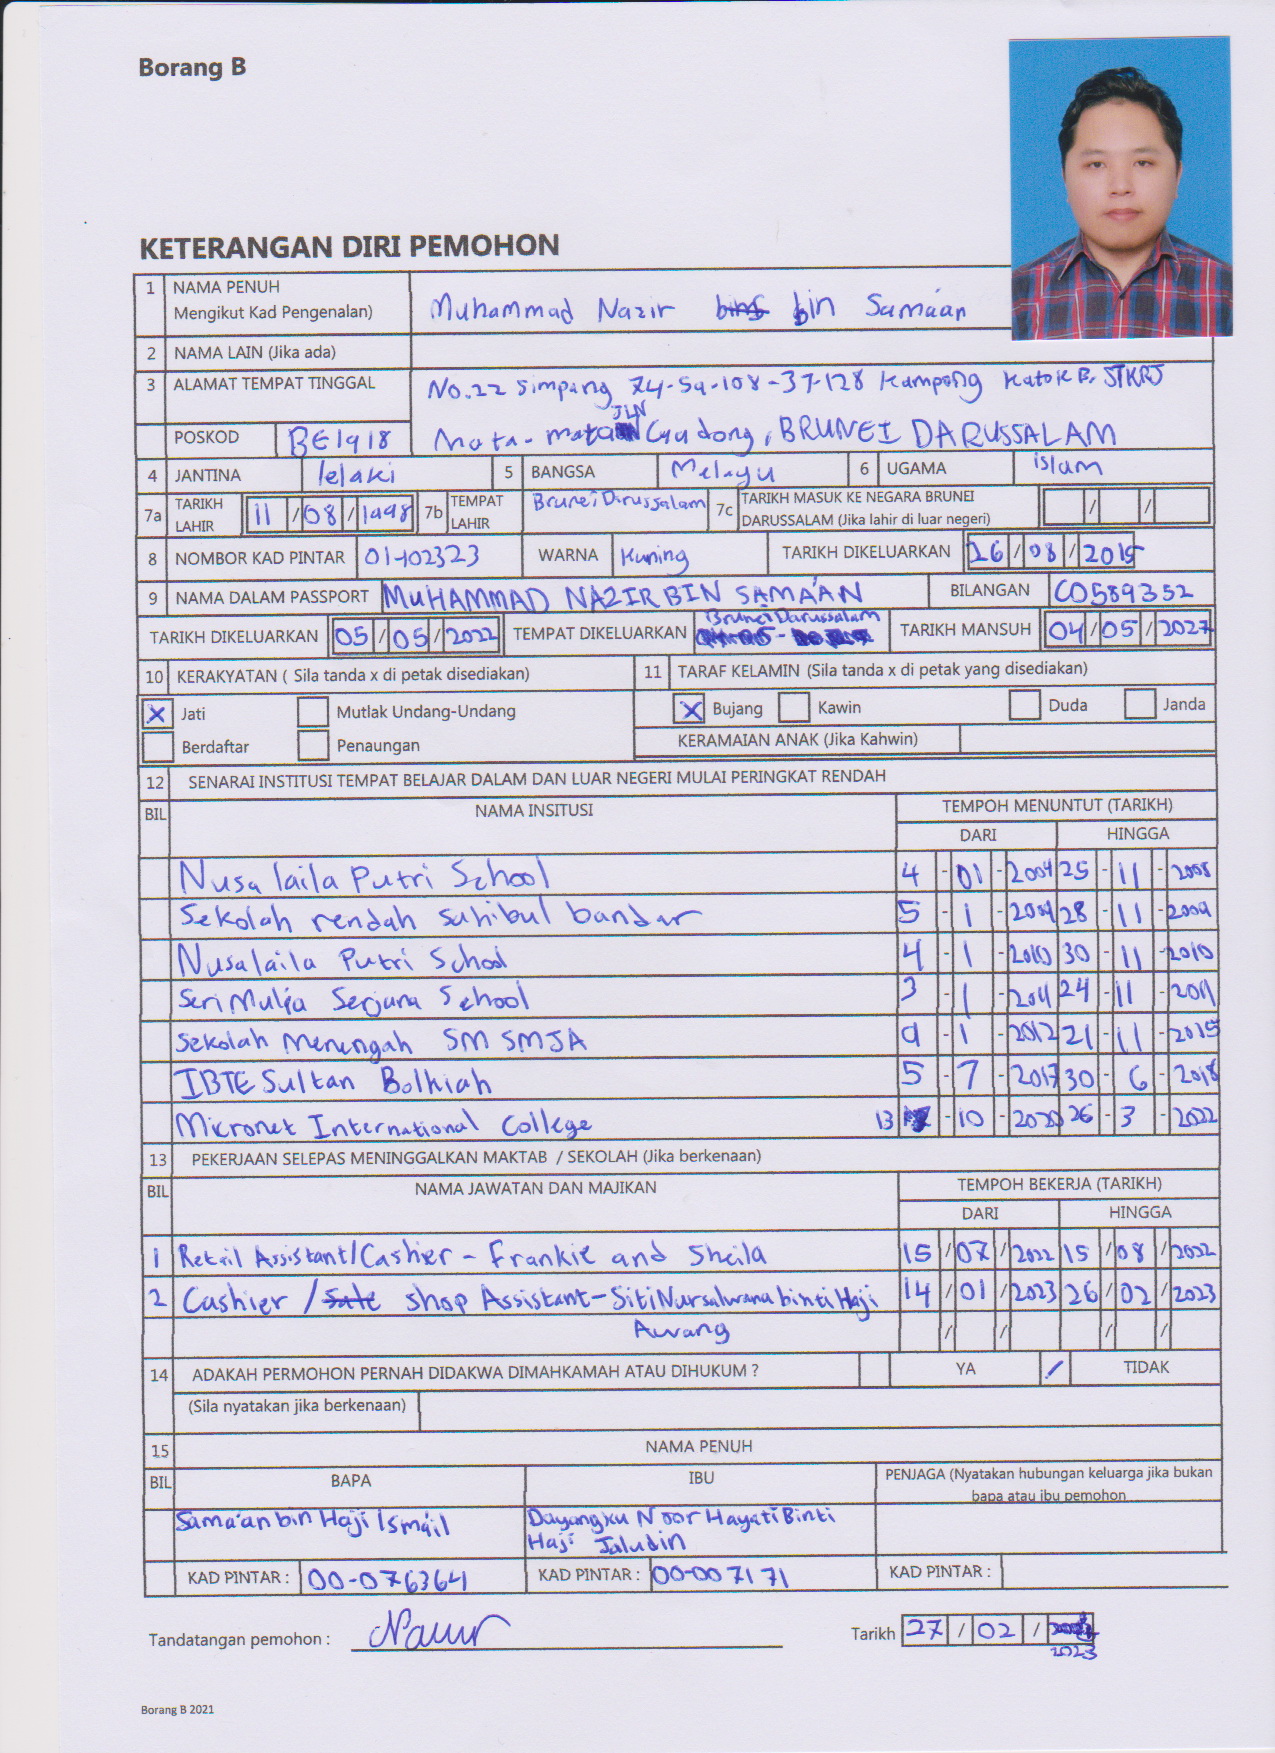 Borang B
KETERANGAN DIRI PEMOHON
1 NAMA PENUH
Mengikut Kad Pengenalan) Muhammad Nazir bin Sama'an
2 NAMA LAIN (Jika ada)
3 ALAMAT TEMPAT TINGGAL No.22 Simpang 74-59-108-37-128 Kampong Katok B, STKRJ
JLN
POSKOD BE1918 Mata-mata Gadong, BRUNEI DARUSSALAM
4 JANTINA lelaki 5 BANGSA Melayu 6 UGAMA islam
7a TARIKH LAHIR 11 / 08 / 1998 7b TEMPAT LAHIR Brunei Dirussalam 7c TARIKH MASUK KE NEGARA BRUNEI
DARUSSALAM (Jika lahir di luar negeri) / /
8 NOMBOR KAD PINTAR 01-102323 WARNA Kuning TARIKH DIKELUARKAN 26 / 08 / 2015
9 NAMA DALAM PASSPORT MUHAMMAD NAZIR BIN SAMA'AN BILANGAN C0589352
TARIKH DIKELUARKAN 05 / 05 / 2022 TEMPAT DIKELUARKAN Brunei Darussalam TARIKH MANSUH 04 / 05 / 2027
10 KERAKYATAN ( Sila tanda x di petak disediakan) 11 TARAF KELAMIN (Sila tanda x di petak yang disediakan)
x Jati Mutlak Undang-Undang x Bujang Kawin Duda Janda
Berdaftar Penaungan KERAMAIAN ANAK (Jika Kahwin)
12 SENARAI INSTITUSI TEMPAT BELAJAR DALAM DAN LUAR NEGERI MULAI PERINGKAT RENDAH
BIL NAMA INSITUSI TEMPOH MENUNTUT (TARIKH)
DARI HINGGA
Nusa laila Putri School 4 - 01 - 2004 25 - 11 - 2008
Sekolah rendah sahibul bandar 5 - 1 - 2009 28 - 11 - 2009
Nusa laila Putri School 4 - 1 - 2010 30 - 11 - 2010
Seri Mulia Serjana School 3 - 1 - 2011 24 - 11 - 2011
Sekolah Menengah SM SMJA 9 - 1 - 2012 21 - 11 - 2015
IBTE Sultan Bolkiah 5 - 7 - 2017 30 - 6 - 2018
Micronet International College 13 - 10 - 2020 26 - 3 - 2022
13 PEKERJAAN SELEPAS MENINGGALKAN MAKTAB / SEKOLAH (Jika berkenaan)
BIL NAMA JAWATAN DAN MAJIKAN TEMPOH BEKERJA (TARIKH)
DARI HINGGA
1 Retail Assistant/Cashier - Frankie and Sheila 15 / 07 / 2022 15 / 08 / 2022
2 Cashier / Sale shop Assistant - Siti Nursalwana binti Haji 14 / 01 / 2023 26 / 02 / 2023
Awang / / / /
14 ADAKAH PERMOHON PERNAH DIDAKWA DIMAHKAMAH ATAU DIHUKUM ? YA / TIDAK
(Sila nyatakan jika berkenaan)
15 NAMA PENUH
BIL BAPA IBU PENJAGA (Nyatakan hubungan keluarga jika bukan
bapa atau ibu pemohon
Sama'an bin Haji Ismail Dayangku Noor Hayati Binti
Haji Jaludin
KAD PINTAR : 00-076364 KAD PINTAR : 00-007171 KAD PINTAR :
Tandatangan pemohon : Tarikh 27 / 02 /
2023
Borang B 2021